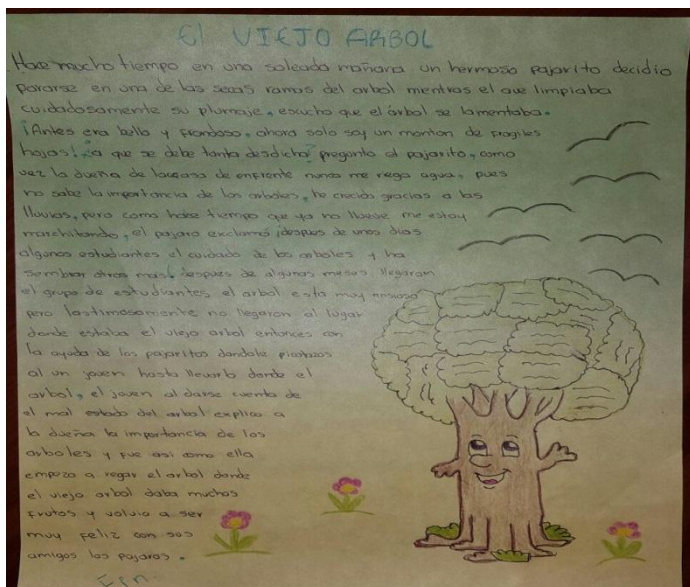 El VIEJO ARBOL
Hace mucho tiempo en una soleada mañana un hermoso pajarito decidio
pararse en una de las secas ramas del arbol mientras el ave limpiaba
cuidadosamente su plumaje, escucho que el árbol se lamentaba.
¡Antes era bello y frondoso, ahora solo soy un monton de fragiles
hojas! ¿a que se debe tanta desdicha? pregunto el pajarito, como
vez la dueña de la casa de enfrente nunca me rega agua, pues
no sabe la importancia de los arboles, he crecido gracias a las
lluvias, pero como hace tiempo que ya no llueve me estoy
marchitando, el pajaro exclamó ¡despues de unos dias
algunos estudiantes el cuidado de los arboles y ha
sembrar otros mas! despues de algunos meses llegaron
el grupo de estudiantes el arbol esta muy
pero lastimosamente no llegaron al lugar
donde estaba el viejo arbol entonces con
la ayuda de los pajaritos dandole picotazos
al un joven hasta llevarlo donde el
arbol, el joven al darse cuenta de
el mal estado del arbol explico a
la dueña la importancia de los
arboles y fue asi como ella
empezo a regar el arbol donde
el viejo arbol daba muchos
frutos y volvio a ser
muy feliz con sus
amigos los pajaros.
Fin.